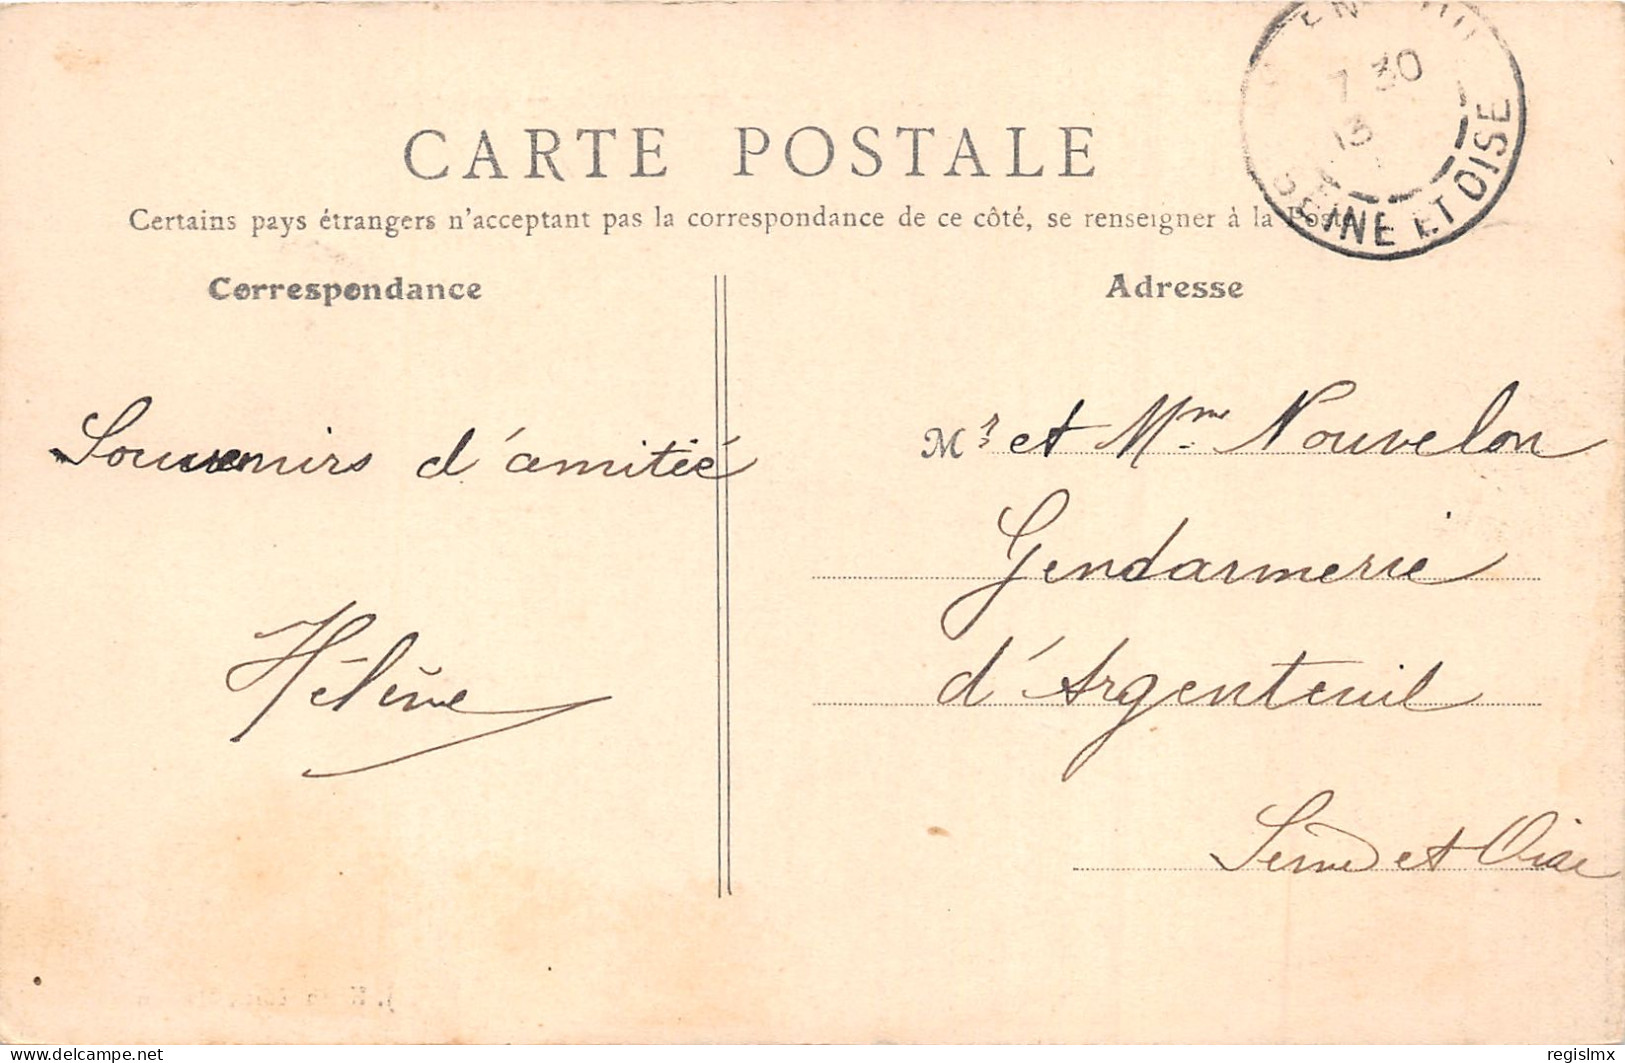 CARTE POSTALE
Certains pays étrangers n'acceptant pas la correspondance de ce côté, se renseigner à la Poste
7 30
13
SEINE ET OISE
Correspondance
Adresse
Souvenirs d'amitié
Hélène
Mr et Mme Nouvelon
Gendarmerie
d'Argenteuil
Seine et Oise
delcampe.net
regislmx